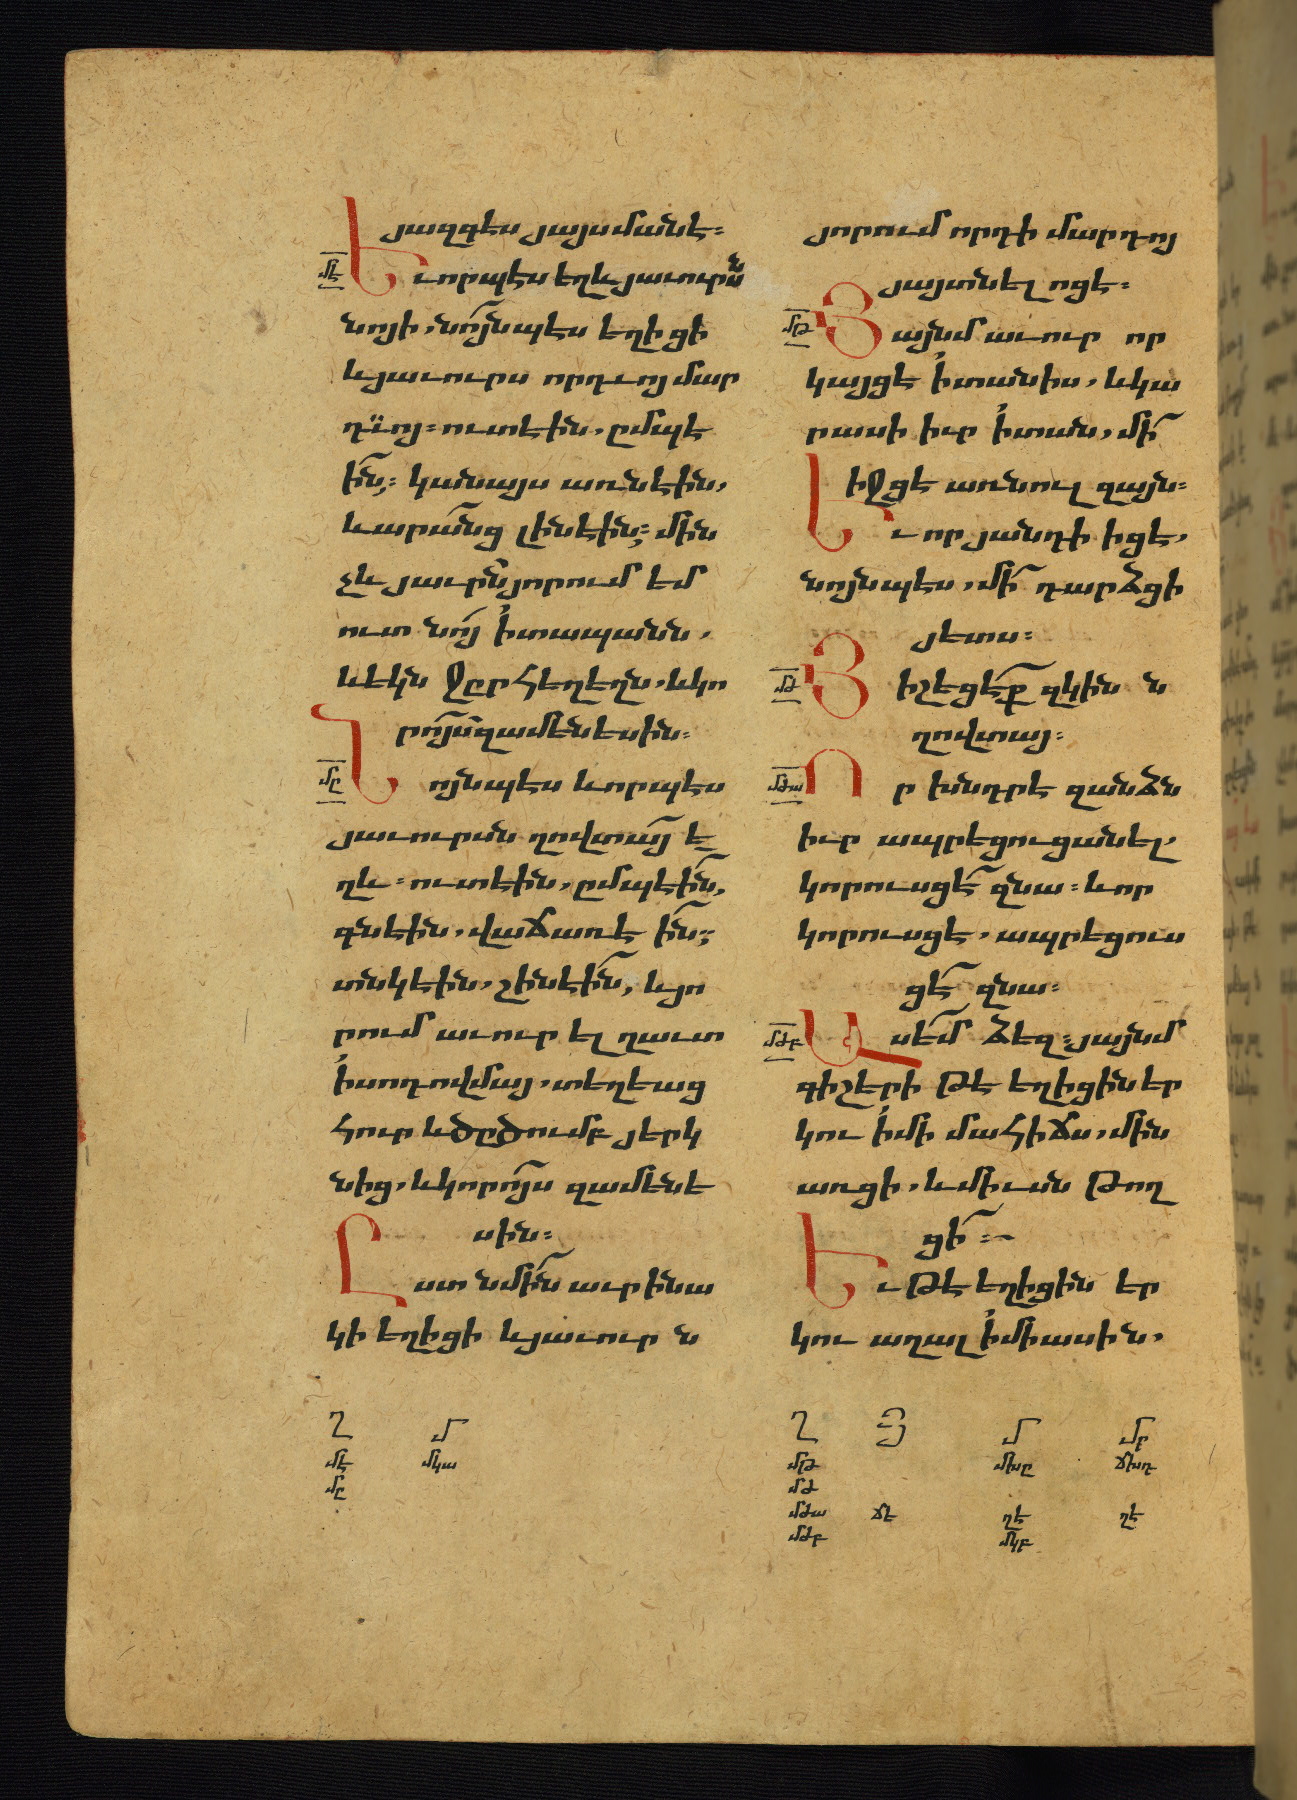 յազգէս յայսմանէ։
մէ Եւ որպէս եղև յաւուրսն
նոյի, նոյնպէս եղիցի
և յաւուրս որդւոյ մար
դւոյ։ ուտէին, ըմպէ
ին։ կանայս առնէին,
և արանց լինէին։ մին
չև յաւրն յորում եմ
ուտ նոյ ի տապանն,
և եկն ջըրհեղեղն, և կո
րոյս զամենեսին։
մը Նոյնպէս և որպէս
յաւուրսն ղովտայ ե
ղև։ ուտէին, ըմպէին,
գնէին, վաճառէ ին։
տնկէին, շինէին, և յո
րում աւուր ել ղաւտ
ի սոդովմայ, տեղեաց
հուր և ծըծումբ յերկ
նից, և կորոյս զամենե
սին։
Ըստ նմին աւրինա
կի եղիցի և յաւուր ն
Ղ Մ
մէ մկա
մը
յորում որդի մարդոյ
յայտնել ոցէ։
մթ Յայնմ աւուր որ
կայցէ ի տանիս, և կա
րասի իւր ի տան, մի
իջցէ առնուլ զայն։
Եւ որ յանդի իցէ,
նոյնպէս, մի դարձցի
յետս։
մժ Յիշեցէք զկին ն
ղովտայ։
մժա Որ խնդրէ զանձն
իւր ապրեցուցանել,
կորուսցէ զնա։ և որ
կորուսցէ, ապրեցուս
ցէ զնա։
մժբ Ասեմ ձեզ։ յայնմ
գիշերի թէ եղիցին եր
կու ի մի մահիճս, մին
առցի, և միւսն թող
ցի։
Եւ թէ եղիցին եր
կու աղալ ի միասին,
Ղ Յ Մ Մր
մթ մխը ճխդ
մժ
մժա ճէ ղէ ղէ
մժբ մկբ